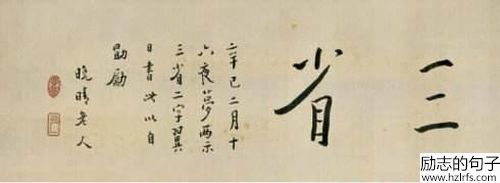 三省
辛巳二月十
六夜夢兩示
三省二字翼
日書此以自
勖勵
晚晴老人
励志的句子
www.hzlrfs.com